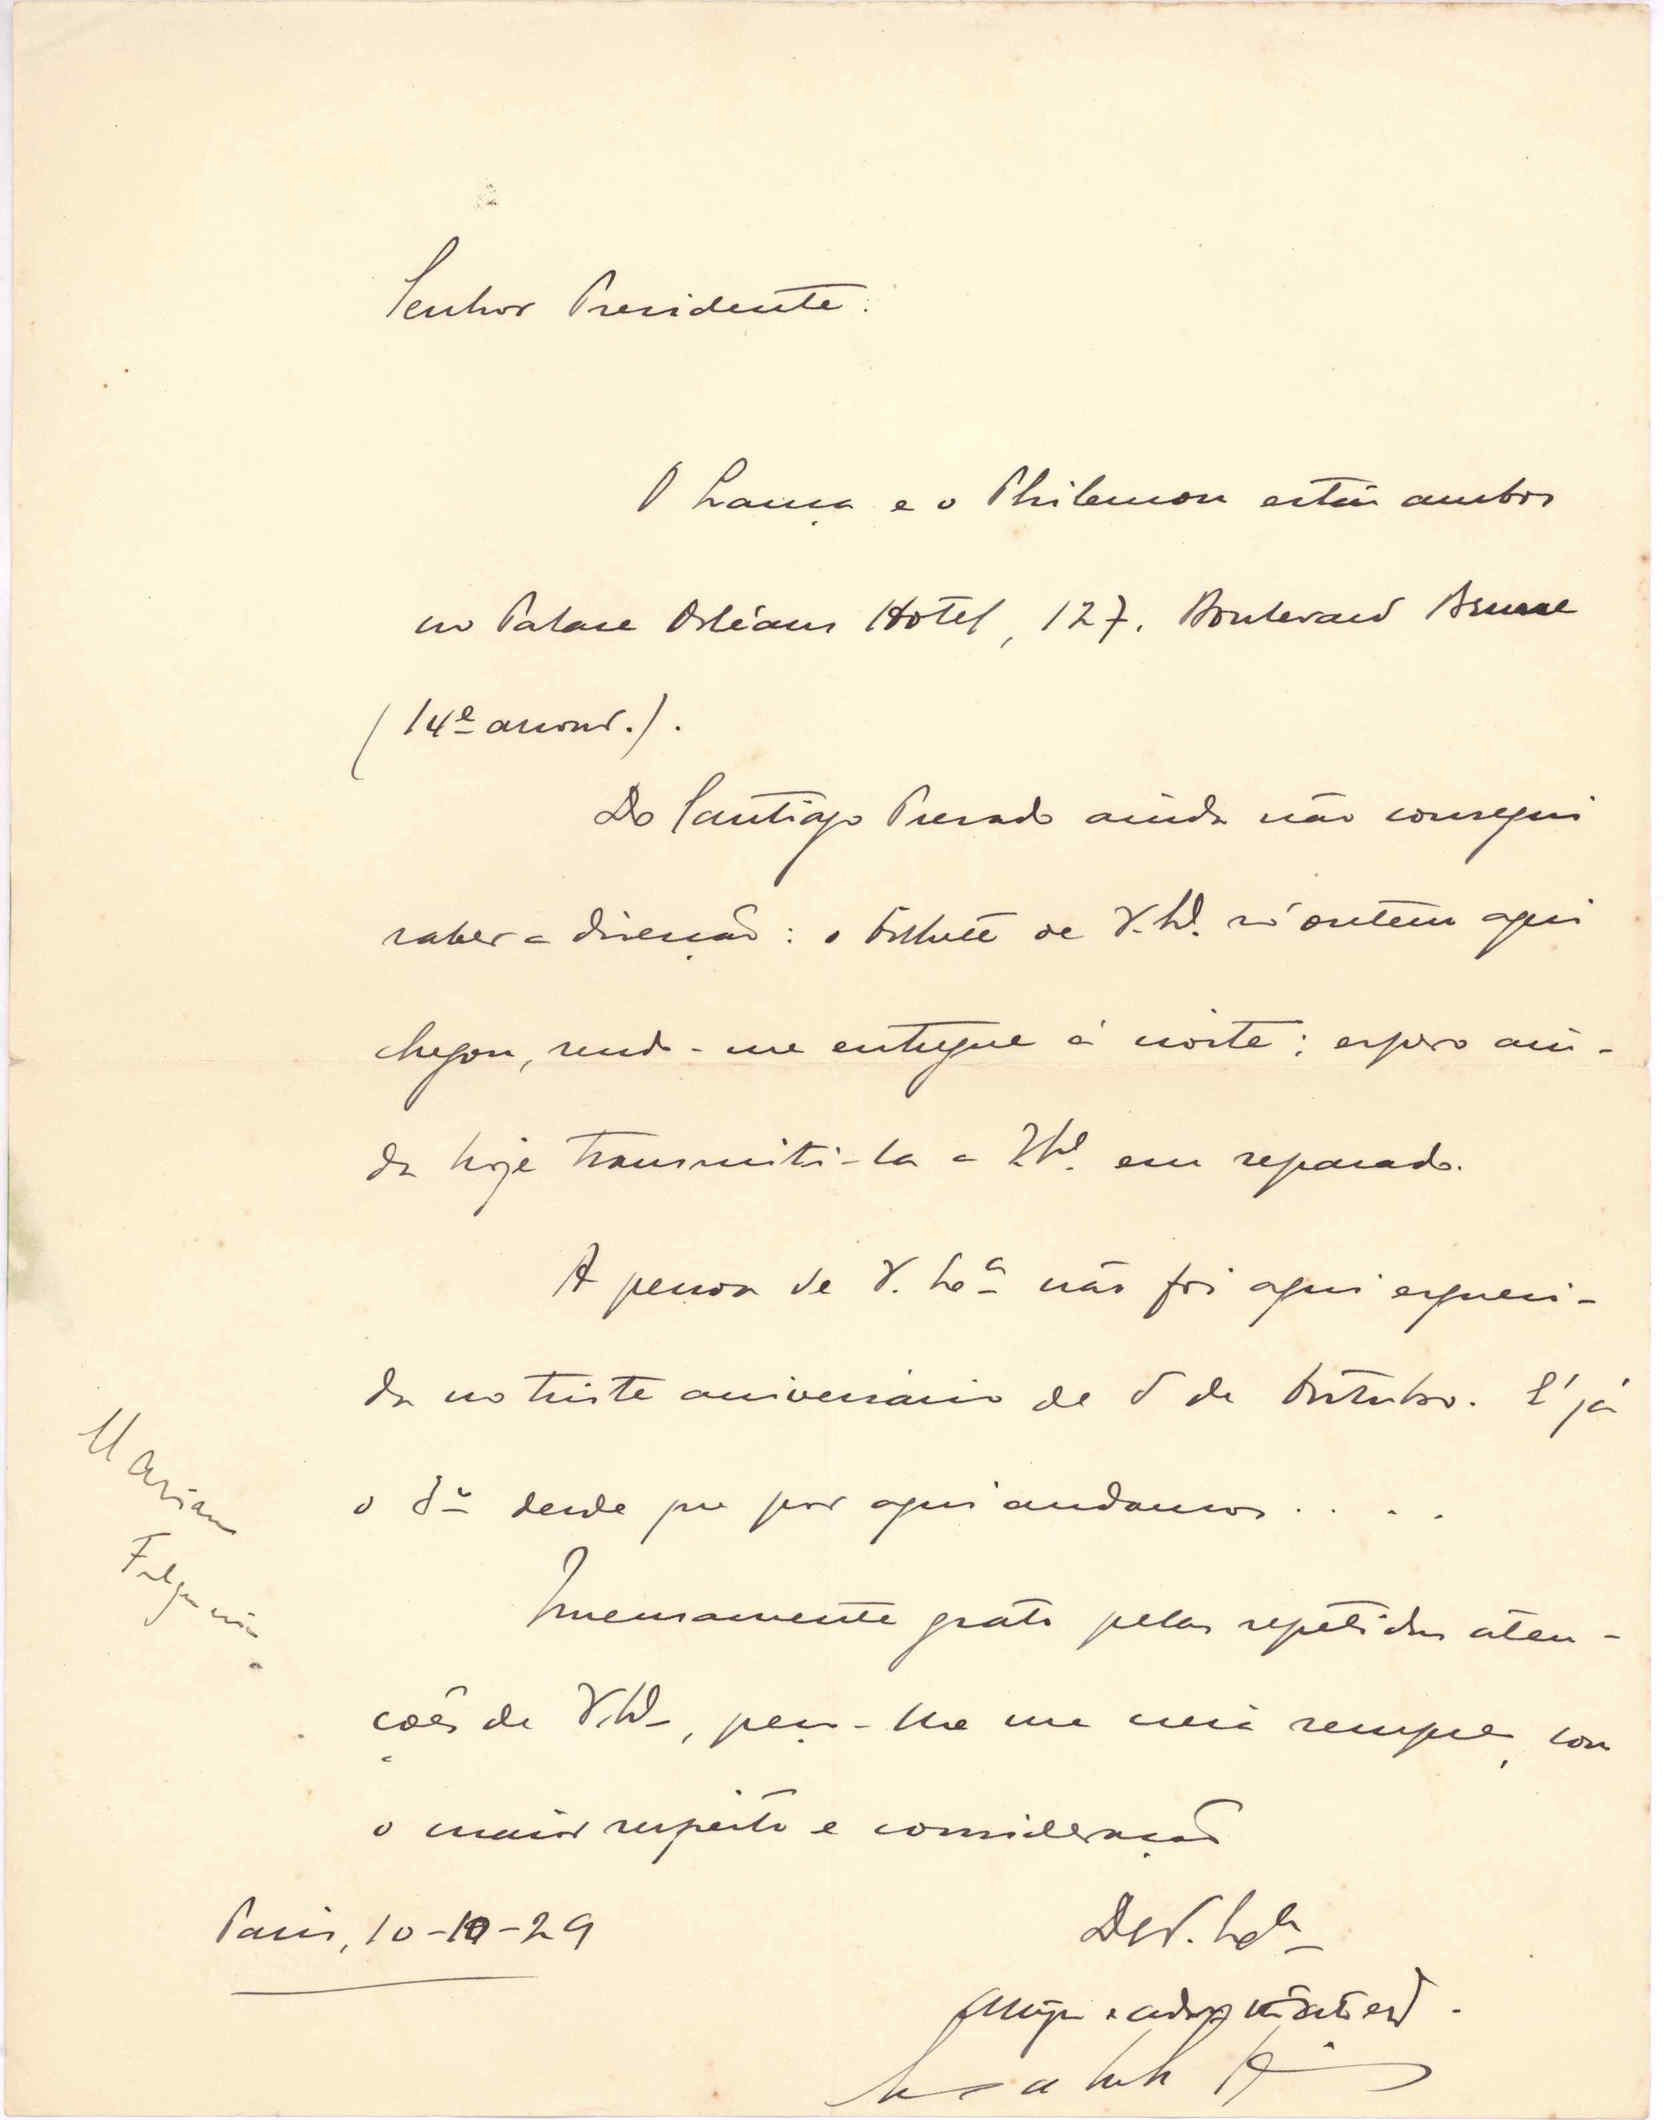 Senhor Presidente:
O Lança e o Philemon estão ambos
no Palace Orléans Hotel, 127, Boulevard Brune
(14e arrond.).
Do Santiago Presado ainda não consegui
saber a direcção: o bilhete de V. Ex.ª só ontem aqui
chegou, sendo-me entregue á noite; espero ain-
da hoje transmiti-la a V. Ex.ª em separado.
A pessoa de V. Ex.ª não foi aqui esqueci-
da no triste aniversário de 5 de Outubro. É já
o 3º desde que por aqui andamos....
Imensamente grato pelas repetidas aten-
ções de V. Ex.ª, peço-lhe me creia sempre, com
o maior respeito e consideração
Paris, 10-10-29
De V. Ex.ª